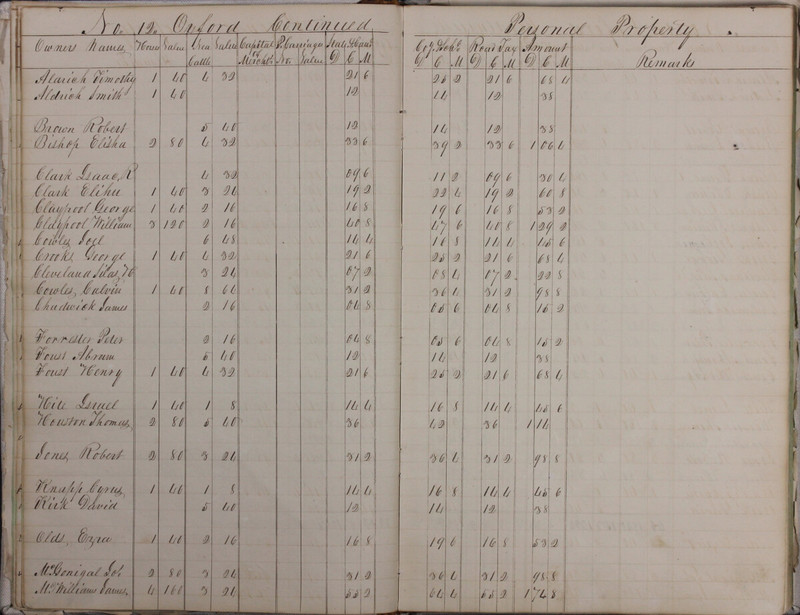 No. 12. Oxford Continued Personal Property
Owners Names Horses Value Neat Cattle Value Capital of Mercht P. Carriages No. Value State & Canal D C M Coy & School D C M Road Tax D C M Amount D C M Remarks
Aldrich Timothy 1 40 4 32 21 6 25 2 21 6 68 4
Aldrich Smith 1 40 12 14 12 38
Brown Robert 5 40 12 14 12 38
Bishop Elisha 2 80 4 32 33 6 39 2 33 6 1 06 4
Clark Isaac, R 4 32 09 6 11 2 09 6 30 4
Clark Elihu 1 40 3 24 19 2 22 4 19 2 60 8
Claypool George 1 40 2 16 16 8 19 6 16 8 53 2
Claypool William 3 120 2 16 40 8 47 6 40 8 1 29 2
Cowles Joel 6 48 14 4 16 8 14 4 45 6
Crooks George 1 40 4 32 21 6 25 2 21 6 68 4
Cleveland Silas, H 3 24 07 2 08 4 07 2 22 8
Cowles, Calvin 1 40 8 64 31 2 36 4 31 2 98 8
Chadwick James 2 16 04 8 05 6 04 8 15 2
Forrester Peter 2 16 04 8 05 6 04 8 15 2
Foust Abram 5 40 12 14 12 38
Foust Henry 1 40 4 32 21 6 25 2 21 6 68 4
Hite Israel 1 40 1 8 14 4 16 8 14 4 45 6
Houston Thomas 2 80 5 40 36 42 36 1 14
Jones Robert 2 80 3 24 31 2 36 4 31 2 98 8
Knapp Cyrus 1 40 1 8 14 4 16 8 14 4 45 6
Kirk David 5 40 12 14 12 38
Olds, Ezra 1 40 2 16 16 8 19 6 16 8 53 2
McGonigal Jos 2 80 3 24 31 2 36 4 31 2 98 8
McWilliams James 4 160 3 24 55 2 64 4 55 2 1 74 8